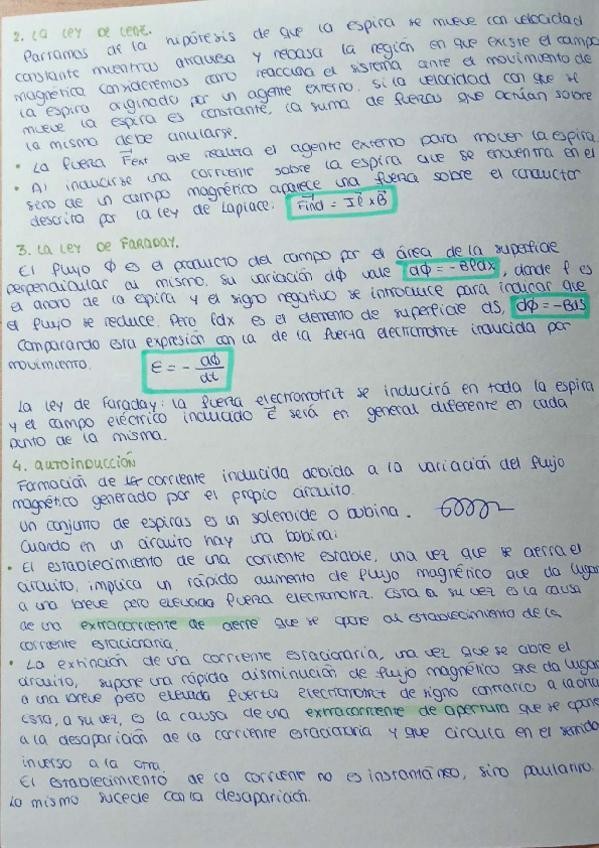 2. LA LEY DE LENZ.
Partamos de la hipótesis de que la espira se mueve con velocidad
constante mientras atraviesa y rebasa la región en que existe el campo
magnético consideremos como reacciona el sistema ante el movimiento de
la espira originado por un agente externo. Si la velocidad con que se
mueve la espira es constante, la suma de fuerzas que actúan sobre
la misma debe anularse.
• La fuerza F⃗ext que realiza el agente externo para mover la espira.
• Al inducirse una corriente sobre la espira que se encuentra en el
seno de un campo magnético aparece una fuerza sobre el conductor
descrita por la ley de Laplace. F⃗ind = I ℓ⃗ x B⃗
3. LA LEY DE FARADAY.
El flujo Φ es el producto del campo por el área de la superficie
perpendicular al mismo. Su variación dΦ vale dΦ = -Bℓdx, donde ℓ es
el ancho de la espira y el signo negativo se introduce para indicar que
el flujo se reduce. Pero ℓdx es el elemento de superficie ds, dΦ = -Bds
Comparando esta expresión con la de la fuerza electromotriz inducida por
movimiento. ε = - dΦ/dt
La ley de Faraday: la fuerza electromotriz se inducirá en toda la espira
y el campo eléctrico inducido E⃗ será en general diferente en cada
punto de la misma.
4. AUTOINDUCCIÓN
Formación de la corriente inducida debida a la variación del flujo
magnético generado por el propio circuito.
Un conjunto de espiras es un solenoide o bobina.
Cuando en un circuito hay una bobina:
• El establecimiento de una corriente estable, una vez que se cierra el
circuito, implica un rápido aumento de flujo magnético que da lugar
a una breve pero elevada fuerza electromotriz. Esta a su vez es la causa
de una extracorriente de cierre que se opone al establecimiento de la
corriente estacionaria.
• La extinción de una corriente estacionaria, una vez que se abre el
circuito, supone una rápida disminución de flujo magnético que da lugar
a una breve pero elevada fuerza electromotriz de signo contrario a la otra
Esta, a su vez, es la causa de una extracorriente de apertura que se opone
a la desaparición de la corriente estacionaria y que circula en el sentido
inverso a la otra.
El establecimiento de la corriente no es instantáneo, sino paulatino.
Lo mismo sucede con la desaparición.